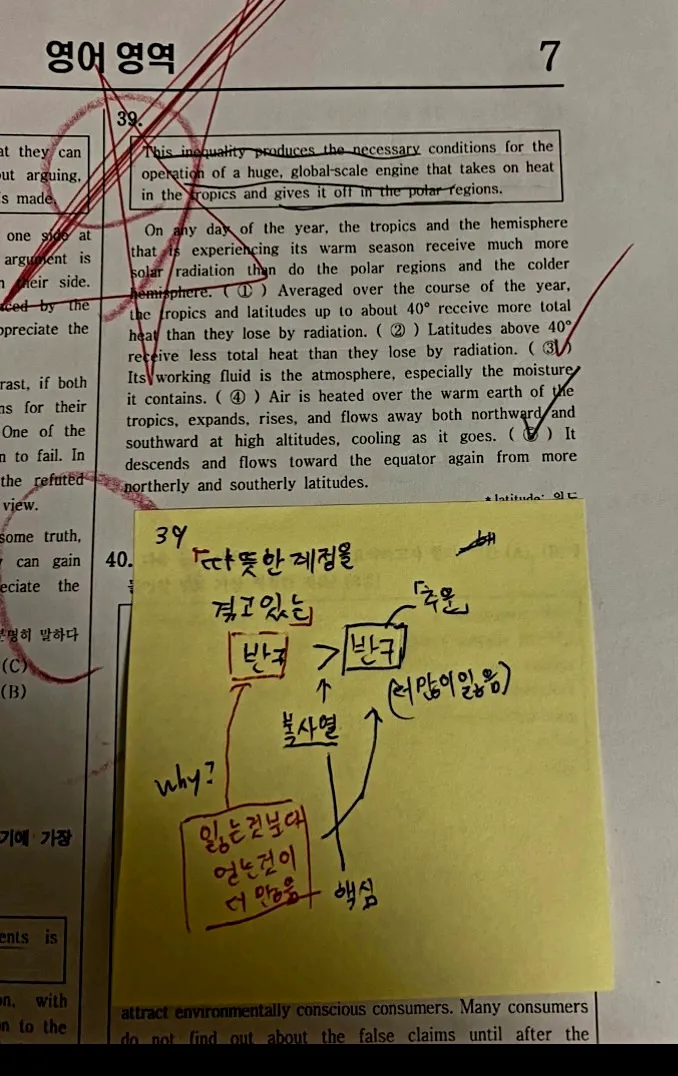 영어 영역
7
at they can
out arguing,
is made.
one side at
argument is
n their side.
ced by the
ppreciate the
rast, if both
ns for their
One of the
n to fail. In
the refuted
view.
some truth,
can gain
eciate the
분명히 말하다
(C)
(B)
기에 가장
ents is
on, with
on to the
39.
This inequality produces the necessary conditions for the
operation of a huge, global-scale engine that takes on heat
in the tropics and gives it off in the polar regions.
On any day of the year, the tropics and the hemisphere
that is experiencing its warm season receive much more
solar radiation than do the polar regions and the colder
hemisphere. ( ① ) Averaged over the course of the year,
the tropics and latitudes up to about 40° receive more total
heat than they lose by radiation. ( ② ) Latitudes above 40°
receive less total heat than they lose by radiation. ( ③ )
Its working fluid is the atmosphere, especially the moisture
it contains. ( ④ ) Air is heated over the warm earth of the
tropics, expands, rises, and flows away both northward and
southward at high altitudes, cooling as it goes. ( ⑤ ) It
descends and flows toward the equator again from more
northerly and southerly latitudes.
* latitude: 위도
40.
39
「따뜻한 계절을
겪고 있는」
반구 > 반구 「추운」
(더 많이 잃음)
복사열
why?
잃는것보다
얻는것이
더 많음
핵심
attract environmentally conscious consumers. Many consumers
do not find out about the false claims until after the